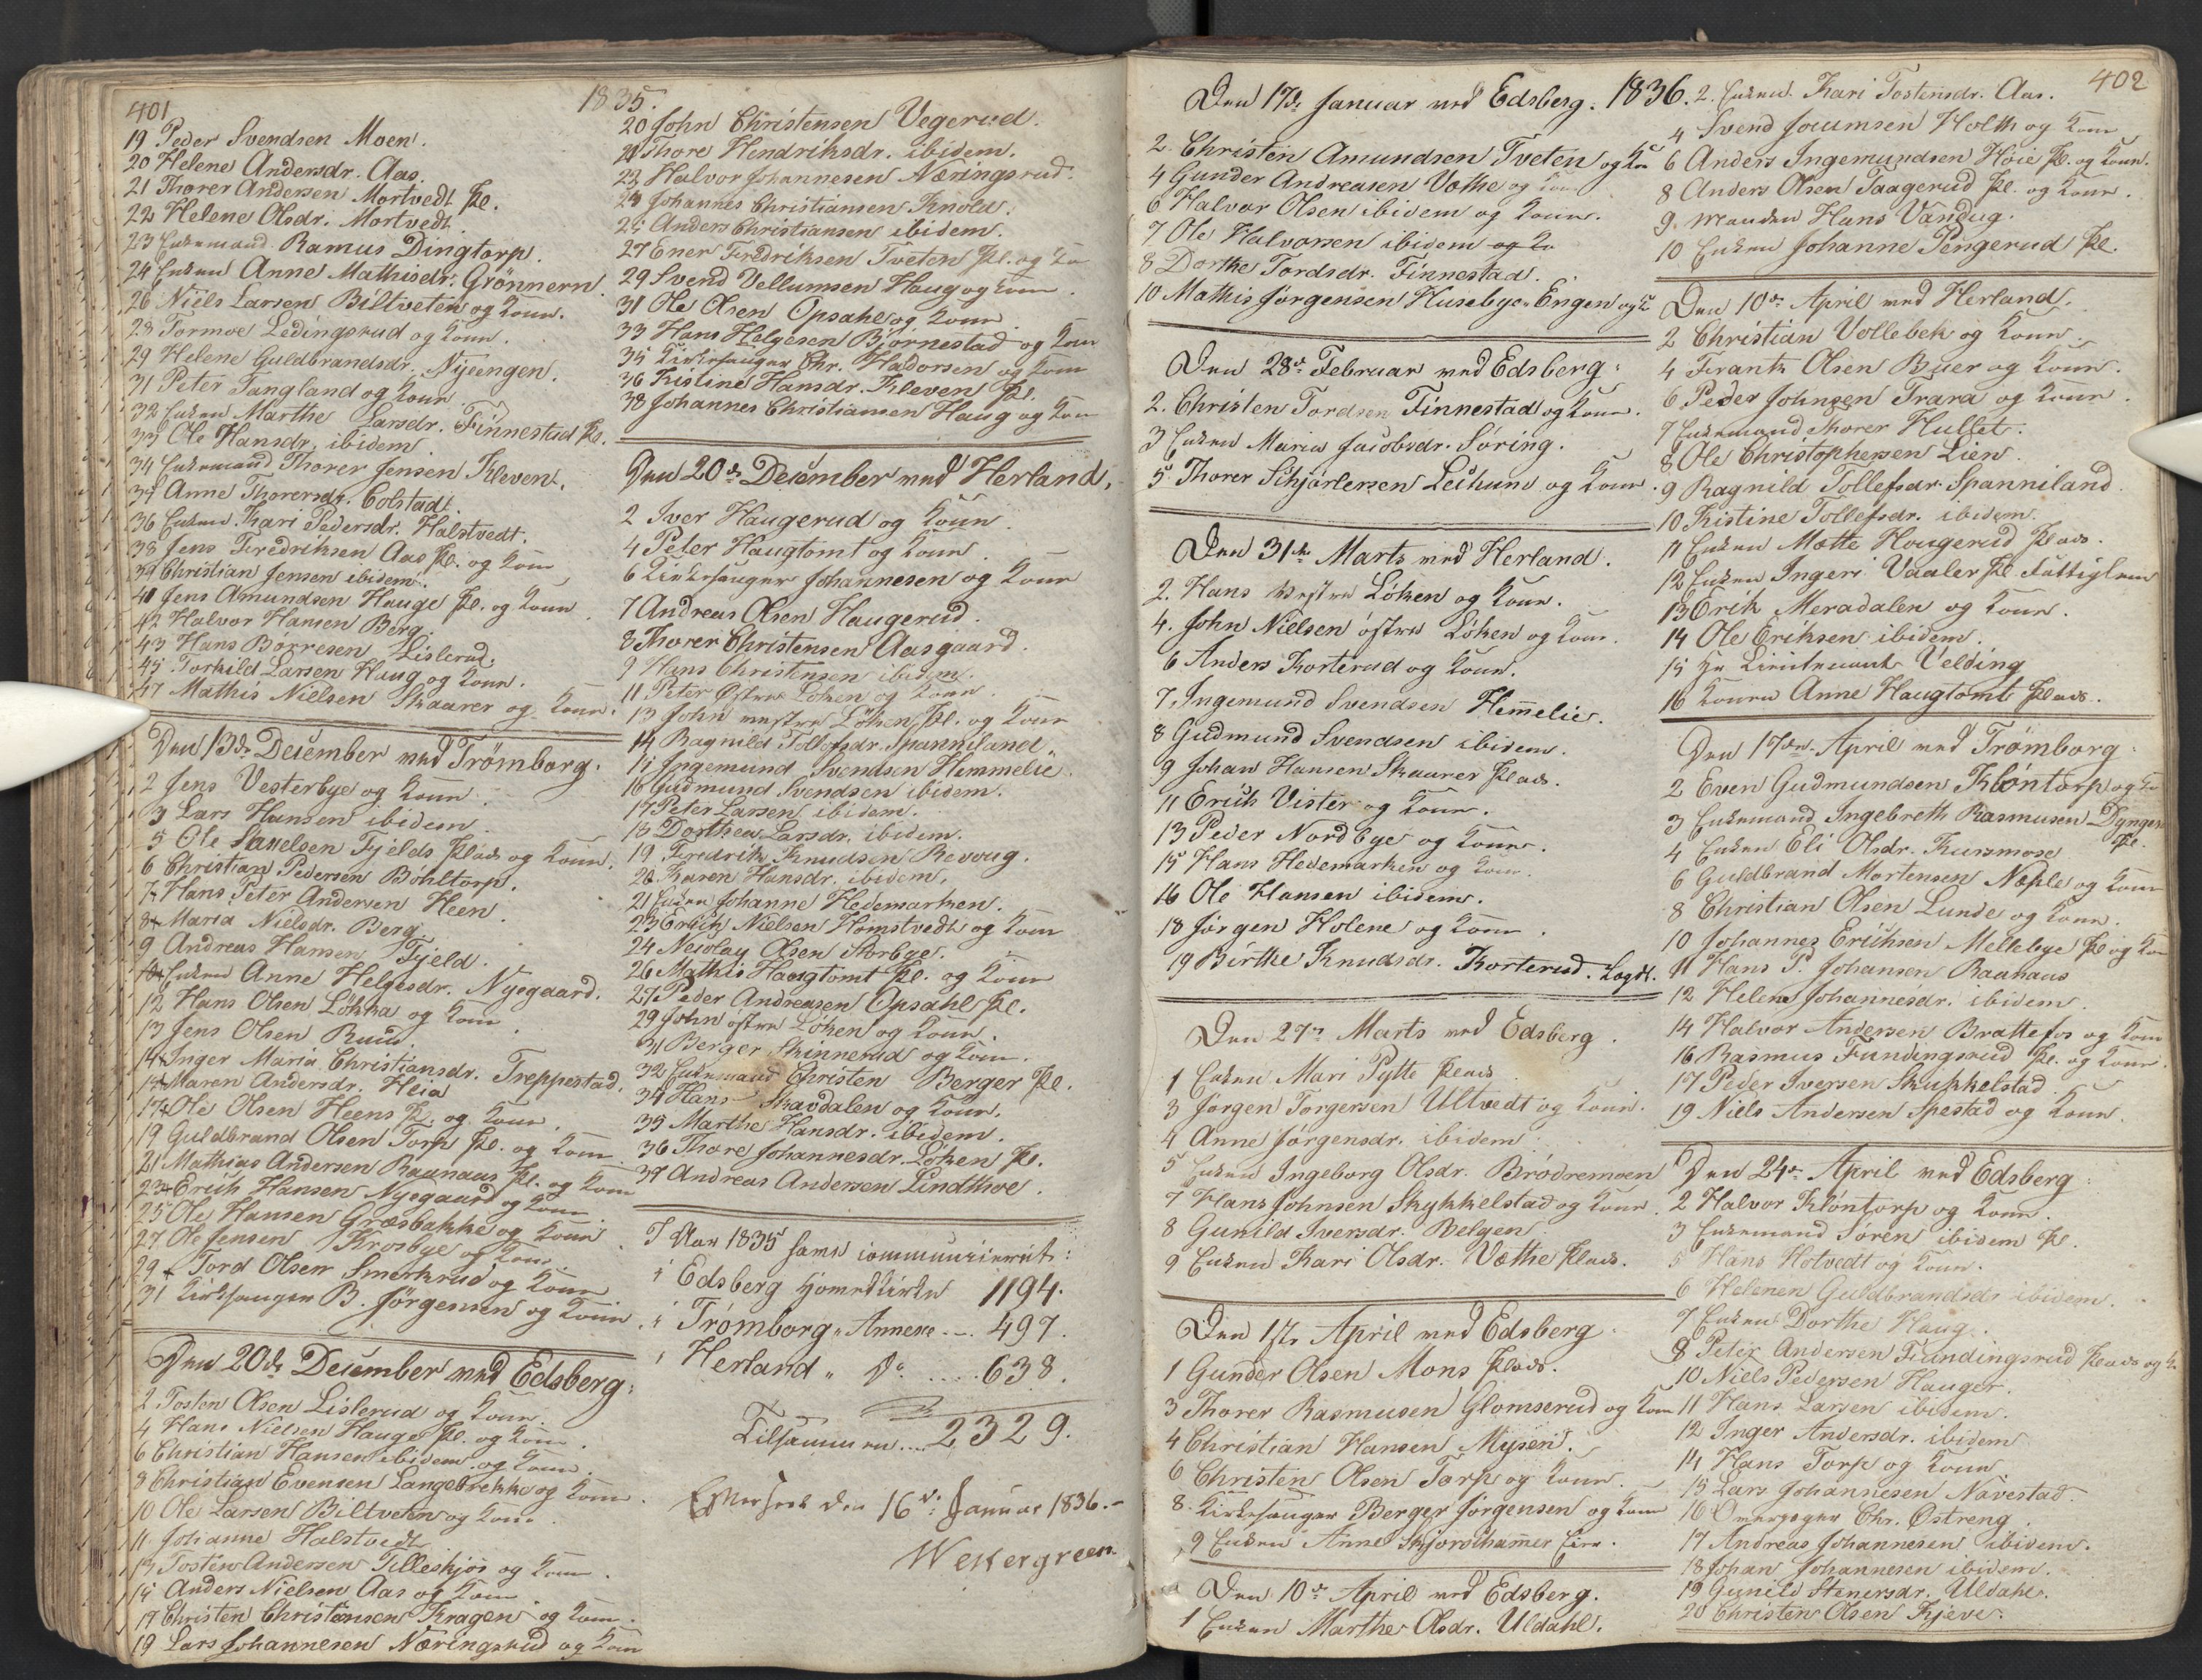 401
1835.
19 Peder Svendsen Moen.
20 Helene Andersdr. Aas.
21 Thorer Andersen Mortvedt Pl.
22 Helene Olsdr. Mortvedt
23 Enkemand Ramus Dingtorp.
24 Enken Anne Mathisdr. Grönnern.
26 Niels Larsen Biltveten og Kone.
28 Tormoe Ledingsrud og Kone.
29 Helene Guldbrandsdr. Nyeengen.
31 Peter Tangland og Kone
32 Enken Marthe Larsdr. Finnestad Pl.
33 Ole Hansdr. ibidem
34 Enkemand Thorer Jensen Kleven.
35 Anne Thorersdr. Colstadt.
36 Enken Kari Pedersdr. Halstvedt.
38 Jens Fredriksen Aas Pl. og Kone
39 Christian Jensen ibidem.
41 Jens Amundsen Hauge Pl. og Kone
42 Halvor Hansen Berg.
43 Hans Börresen Lislerud.
45 Torkild Larsen Haug og Kone.
47 Mathis Nielsen Skaarer og Kone.
Den 13de December ved Trömborg.
2 Jens Vesterbye og Kone.
3 Lars Hansen ibidem
5 Ole Fjelds Plads og Kone.
6 Christian Pedersen Böhltorp.
7 Hans Peter Andersen Heen.
8 Maria Nielsdr. Berg.
9 Andreas Hansen Fjeld.
10 Enken Anne Helgesdr. Nyegaard.
12 Hans Olsen Lökka og Kone
13 Jens Olsen Ruud.
14 Inger Maria Christiansdr. Treppestad.
15 Maren Andersdr. Heia
17 Ole Olsen Heens Pl. og Kone.
19 Guldbrand Olsen Torp Pl. og Kone
21 Mathias Andersen Raanaas Pl. og Kone
23 Erich Hansen Nyegaard og Kone
25 Ole Hansen Græsbakke og Kone
27 Ole Jensen Krosbye og Kone.
29 Tord Olsen Smerkrud og Kone
31 Kirkesanger B. Jörgensen og Kone.
Den 20de December ved Edsberg:
2 Tosten Olsen Lislerud og Kone.
4 Hans Nielsen Hauge Pl. og Kone.
6 Christian Hansen ibidem og Kone.
8 Christian Evensen Langebrekke og Kone.
10 Ole Larsen Biltveten og Kone
11 Johanne Halstvedt
13 Tosten Andersen Tilleskjör og Kone.
15 Anders Nielsen Aas og Kone
17 Christen Christensen Kragen og Kone.
19 Lars Johannesen Næringsrud og Kone
20 John Christensen Vegerud.
21 Thore Hendriksdr. ibidem.
23 Halvor Johannesen Næringsrud.
24 Johannes Christiansen Knold.
25 Anders Christiansen ibidem.
27 Ener Fredriksen Tveten Pl. og Ko
29 Svend Vellumsen Haug og Kone.
31 Ole Olsen Opsahl og Kone
33 Hans Helgesen Björnestad og Kone
35 Kirkesanger Chr. Hadorsen og Kone
36 Kistine Hansdr. Kleven Pl.
38 Johannes Christiansen Haug og Kone
Den 20de December ved Herland.
2 Iver Haugerud og Kone.
4 Peter Haugtomt og Kone.
6 Kirkesanger Johannesen og Kone
7 Andreas Olsen Haugerud.
8 Thorer Christensen Aasgaard.
9 Hans Christensen ibidem.
11 Peter Östre Löken og Kone.
13 John vestre Löken Pl. og Kone
14 Ragnild Tollefsdr. Spanniland.
15 Ingemund Svendsen Hemmelie.
16 Gudmund Svendsen ibidem.
17 Peter Larsen ibidem.
18 Dorthea Larsdr. ibidem.
19 Fredrik Knudsen Revoug.
20 Karen Hansdr. ibidem.
21 Enken Johanne Hedemarken.
23 Erich Nielsen Homstvedt og Kone
24 Neiolay Olsen Storbye.
26 Mathis Haugtomt Pl. og Kone
27 Peder Andreasen Opsahl Pl.
29 John östre Löken og Kone.
31 Berger Skinnerud og Kone.
32 Enkemand Christen Berger Pl.
34 Hans Skavdalen og Kone.
35 Marthe Hansdr. ibidem.
36 Thore Johannesdr. Löken Pl.
37 Andreas Andersen Lindthoe.
I Aar 1835 have communiceret:
i Edsberg Hovedkirke 1194.
i Trömborg Annexe .. 497.
i Herland " Do .... 638.
Tilsammen .... 2329.
Efterseet den 16de Januar 1836.
Wekergreen.
402
Den 17de Januar ved Edsberg. 1836.
2. Christen Amundsen Tveten og Ko
4 Gunder Andreasen Vothe og Kone
6 Halvor Olsen ibidem og Kone.
7 Ole Halvorsen ibidem og Ko
8 Dorthe Tordsdr. Finnestad.
10 Mathis Jörgensen Husebye Engen og Ko
Den 28de Februar ved Edsberg:
2. Christen Tordsen Finnestad og Kone.
3 Enken Maria Jacobsdr. Söring.
5 Thorer Schjörlersen Leihund og Kone.
Den 31te Marts ved Herland.
2. Hans vestre Löken og Kone.
4. John Nielsen östre Löken og Kone.
6 Anders Korterud og Kone.
7. Ingemund Svendsen Hemelie.
8 Gudmund Svendsen ibidem.
9 Johan Hansen Skaarer Plads.
11 Erich Vister og Kone.
13 Peder Nordbye og Kone.
15 Hans Hedemarken og Kone.
16 Ole Hansen ibidem.
18 Jörgen Holene og Kone.
19 Birthe Knudsdr. Korterud. Logdt.
Den 27de Marts ved Edsberg.
1 Enken Mari Pytte Plads
3 Jörgen Torgersen Ultvedt og Kone.
4 Anne Jörgensdr. ibidem
5 Enken Ingeborg Olsdr. Brödremoen
7 Hans Johnsen Skykkelstad og Kone.
8 Gunild Iversdr. Velgen
9 Enken Kari Olsdr. Væthe Plads.
Den 1ste April ved Edsberg
1 Gunder Olsen Mons Plads.
3 Thorer Rasmusen Glomserud og Kone
4 Christian Hansen Mysen.
6 Christen Olsen Torp og Kone.
8. Kirkesanger Berger Jörgensen og Kone
9 Enken Anne Skjorshamer Eier.
Den 10de April ved Edsberg.
1 Enken Marthe Olsdr. Uldahl.
2. Enken Kari Tostensdr. Aas.
4 Svend Joumsen Holth og Kone
6 Anders Ingemundsen Höie Pl. og Kone.
8 Anders Olsen Taagerud Pl. og Kone.
9. Manden Hans Vandug.
10 Enken Johanne Pengerud Pl.
Den 10de April ved Herland.
2 Christian Vollebek og Kone.
4 Frantz Olsen Buer og Kone.
6. Peder Johnsen Trara og Kone.
7 Enkemand Thorer Hullet.
8 Ole Christophersen Lien.
9 Ragnild Tollefsdr. Spanniland.
10 Kistine Tollefsdr. ibidem.
11 Enken Mætte Hougerud Plads.
12 Enken Ingeri Vaaler Pl. Fattiglem
13 Erik Meradalen og Kone.
14 Ole Eriksen ibidem.
15 Hr Lieutenant Velding
16 Konen Anne Haugtomt Plads.
Den 17de April ved Trömborg.
2 Even Gudmundsen Klöntorp og Ko
3 Enkemand Ingebreth Rasmusen Dynges Pl.
4 Enken Eli Olsdr. Kursmose
6 Guldbrand Mortensen Næple og Kone
8 Christian Olsen Lunde og Kone.
10 Johannes Erichsen Mellebye Pl og Kone
11 Hans P. Johansen Raanaas
12 Helene Johannesdr. ibidem
14 Halvor Andersen Brattefos og Kone
16 Rasmus Fundingsrud Pl. og Kone.
17 Peder Iversen Skukkelstad
19 Niels Andersen Spestad og Kone.
Den 24de April ved Edsberg:
2 Halvor Klöntorp og Kone.
3 Enkemand Sören ibidem Pl.
5 Hans Hotvedt og Kone.
6 Helene Guldbrandsdr ibidem.
7 Enken Dorthe Haug.
8 Peter Andersen Fundingsrud Plads og Ko
10 Niels Pedersen Hauger.
11 Hans Larsen ibidem.
12 Inger Andersdr. ibidem
14 Hans Torp og Kone
15 Lars Johannesen Navestad
16 Chr. Östreng.
17 Andreas Johannesen ibidem.
18 Johan Johannesen ibidem.
19 Gunild Stenersdr. Uldahl.
20 Christen Olsen Kjeve.